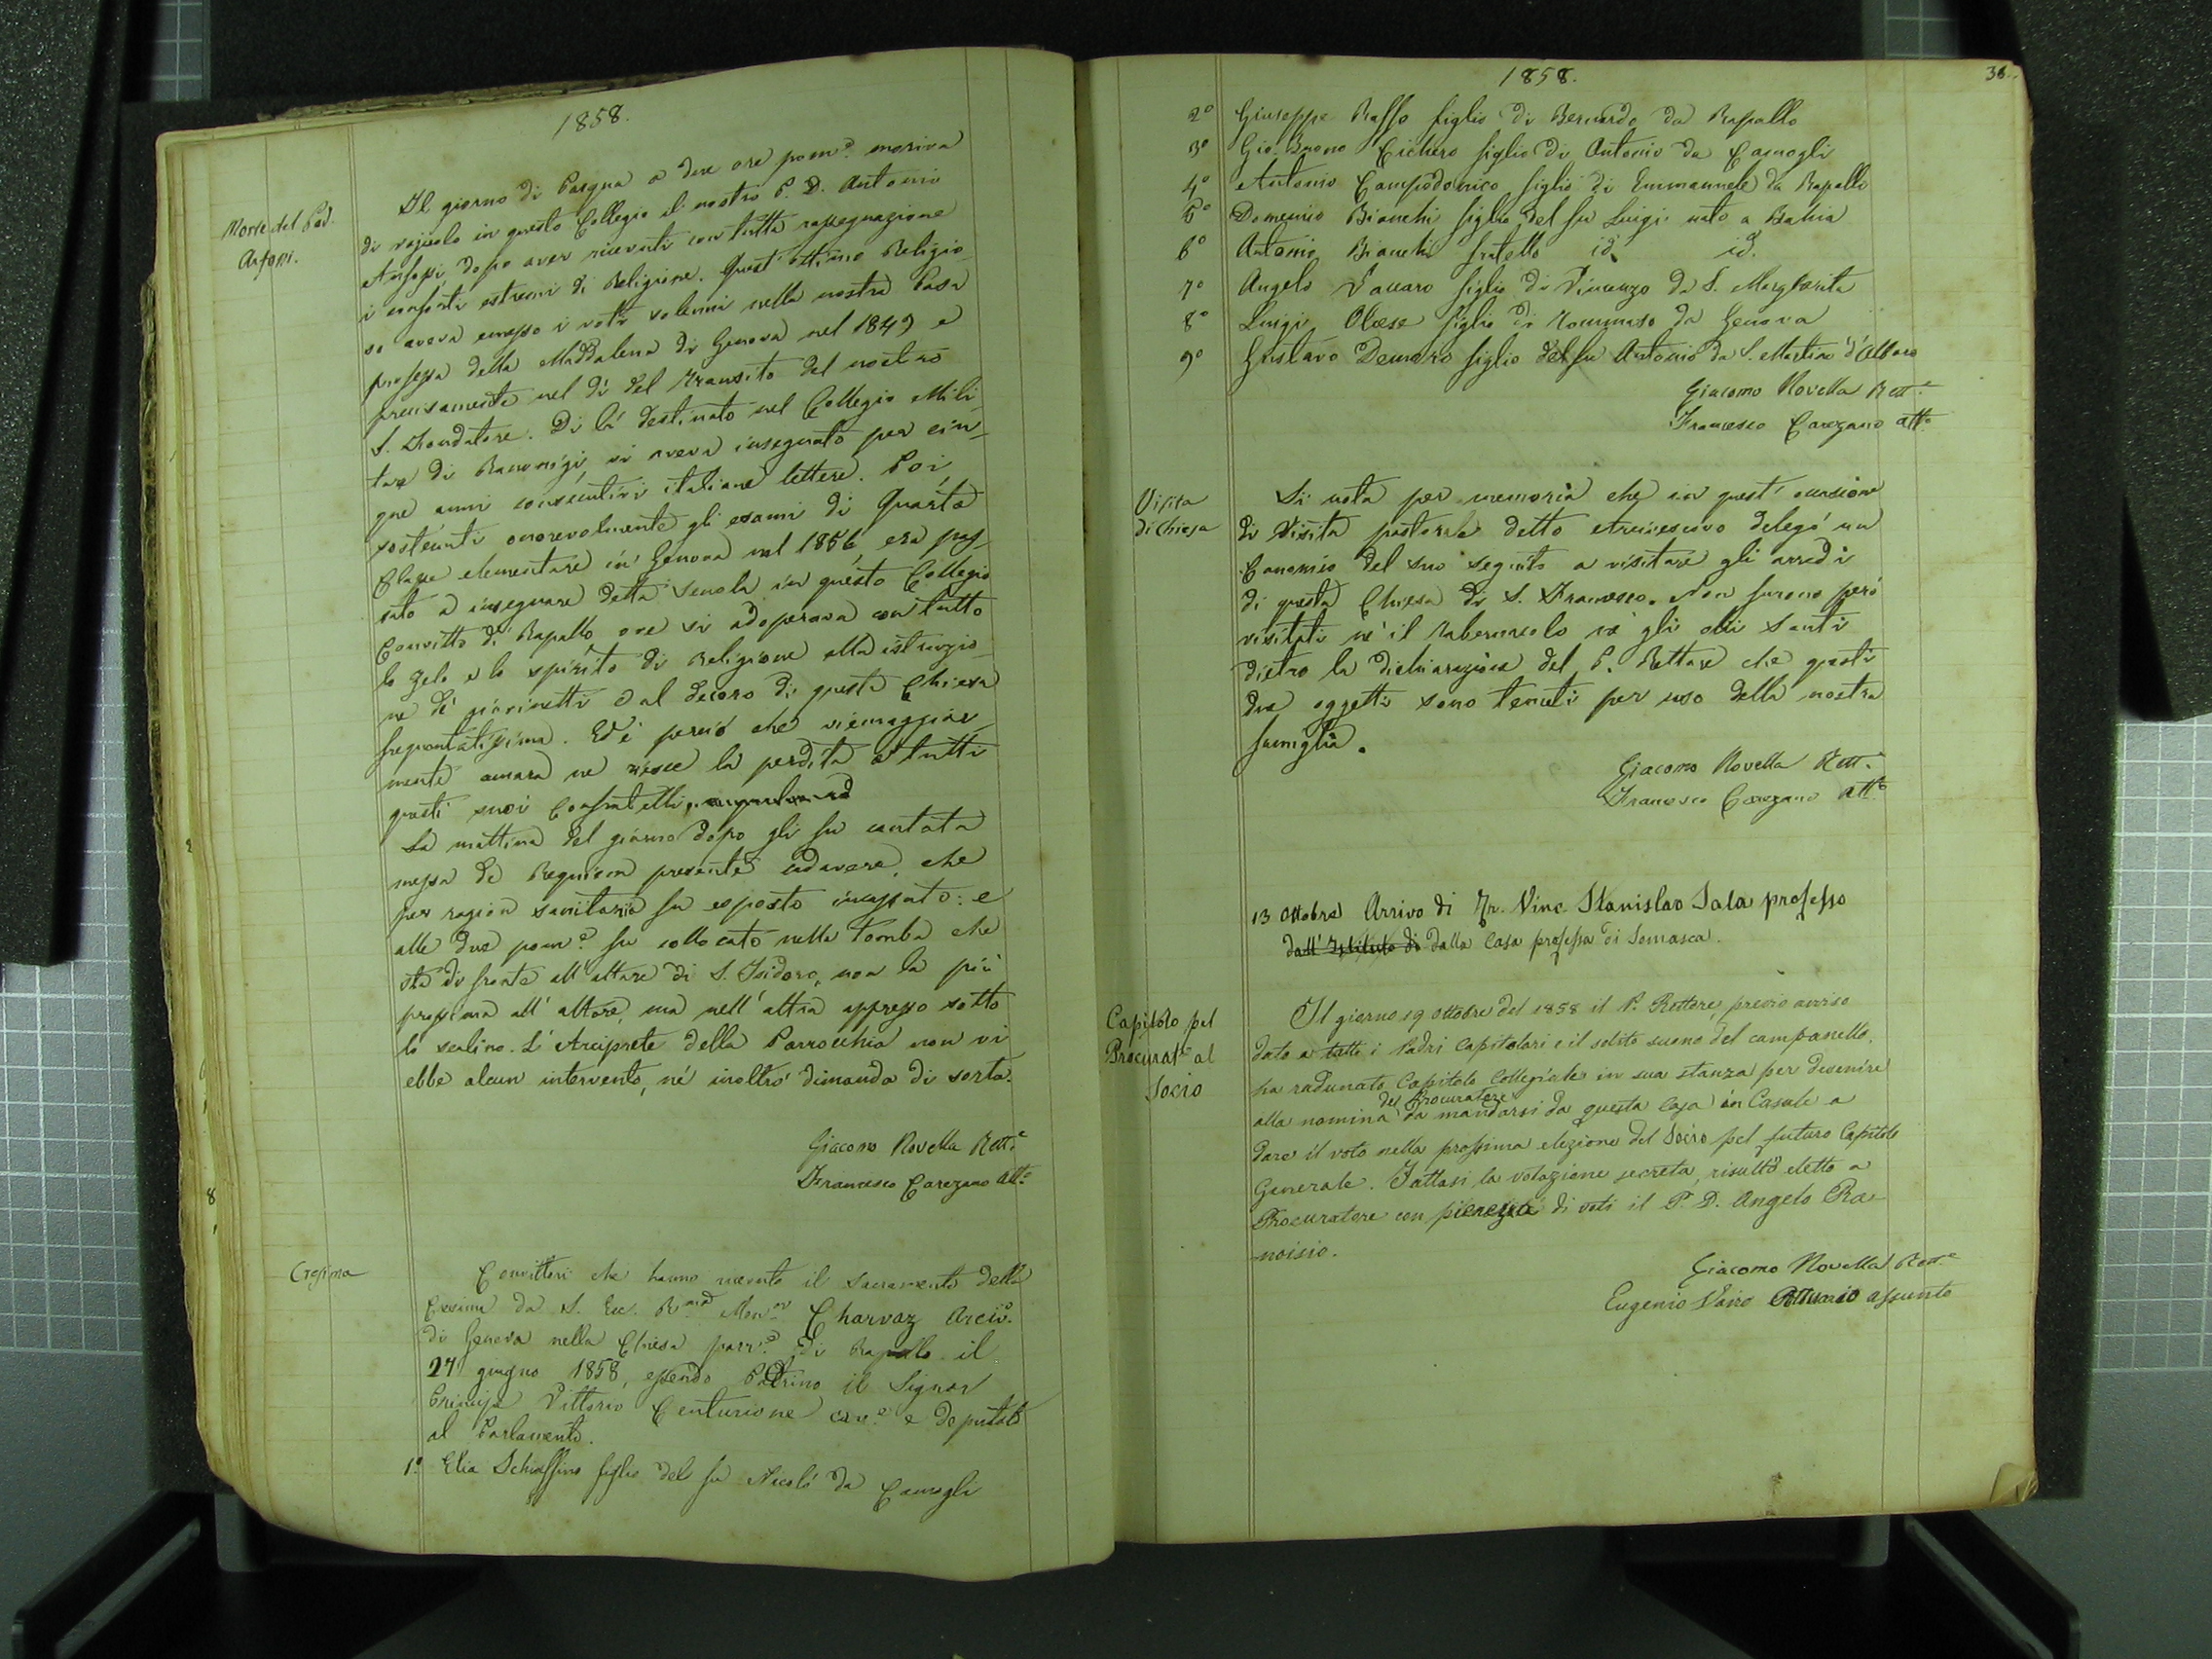 1858.
Morte del Pad.
Anfossi.
Il giorno di Pasqua a due ore pom.e moriva
di vajuolo in questo Collegio il nostro P. D. Antonio
Anfossi, dopo aver ricevuti con tutta rassegnazione
i conforti estremi di Religione. Quest'ottimo Religio-
so aveva emesso i voti solenni nella nostra Casa
professa della Maddalena di Genova nel 1849 e
precisamente nel dì del Transito del nostro
S. Fondatore. Di là destinato nel Collegio Mili-
tare di Racconigi, vi aveva insegnato per cin-
que anni consecutivi italiane lettere. Poi,
sostenuti onorevolmente gli esami di Quarta
Classe elementare in Genova nel 1856, era pas-
sato a insegnare detta Scuola in questo Collegio
Convitto di Rapallo, ove si adoperava con tutto
lo zelo e lo spirito di Religione alla istruzio-
ne de' giovinetti e al decoro di questa Chiesa
frequentatissima. Ed è perciò che viemaggior-
mente amara ne riesce la perdita a tutti
questi suoi Confratelli.
La mattina del giorno dopo gli fu cantata
messa de Requiem presente cadavere, che
per ragion sanitaria fu esposto incassato: e
alle due pom.e fu collocato nella Tomba che
sta di fronte all'altare di S. Isidoro, non la più
prossima all'altare, ma nell'altra appresso sotto
lo scalino. L'Arciprete della Parrocchia non vi
ebbe alcun intervento, nè inoltrò dimanda di sorta.
Giacomo Novella Rett.e
Francesco Carozano Att.o
Cresima
Convittori che hanno ricevuto il Sacramento della
Cresima da S. Ecc. R.ma Mon.or Charvaz Arciv.o
di Genova nella Chiesa parr.e di Rapallo il
27 giugno 1858, essendo Padrino il Signor
Principe Vittorio Centurione cav.e e deputato
al Parlamento.
1.o Elia Schiaffino figlio del fu Nicolò da Camogli
1858.
36.
2o Giuseppe Raffo figlio di Bernardo da Rapallo
3o Gio. Buono Cichero figlio di Antonio da Camogli
4o Antonio Campodonico figlio di Emmanuele da Rapallo
5o Domenico Bianchi figlio del fu Luigi nato a Bahia
6o Antonio Bianchi fratello id. id.
7o Angelo Vaccaro figlio di Vincenzo da S. Margherita
8o Luigi Olcese figlio di Tommaso da Genova
9o Gustavo Demoro figlio del fu Antonio da S. Martino d'Albaro
Giacomo Novella Rett.e
Francesco Carozano Att.o
Visita
di Chiesa
Si nota per memoria che in quest'occasione
di Visita pastorale detto Arcivescovo delegò un
Canonico del suo seguito a visitare gli arredi
di questa Chiesa di S. Francesco. Non furono però
visitati nè il Tabernacolo nè gli olii Santi
dietro la dichiarazione del P. Rettore che questi
due oggetti sono tenuti per uso della nostra
famiglia.
Giacomo Novella Rett.e
Francesco Carozano Att.o
13 Ottobre Arrivo di Fr. Vinc. Stanislao Sala professo
dall'Istituto di dalla Casa professa di Somasca.
Capitolo pel
Procurat.e al
Socio
Il giorno 19 Ottobre del 1858 il P. Rettore, previo avviso
dato a tutti i Padri Capitolari e il solito suono del campanello,
ha radunato Capitolo Collegiale in sua stanza per devenire
alla nomina del Procuratore da mandarsi da questa Casa in Casale a
dare il voto nella prossima elezione del Socio pel futuro Capitolo
Generale. Fattasi la votazione secreta, risultò eletto a
Procuratore con pienezza di voti il P. D. Angelo Ra-
noisio.
Giacomo Novella Rett.e
Eugenio Vairo Attuario assunto